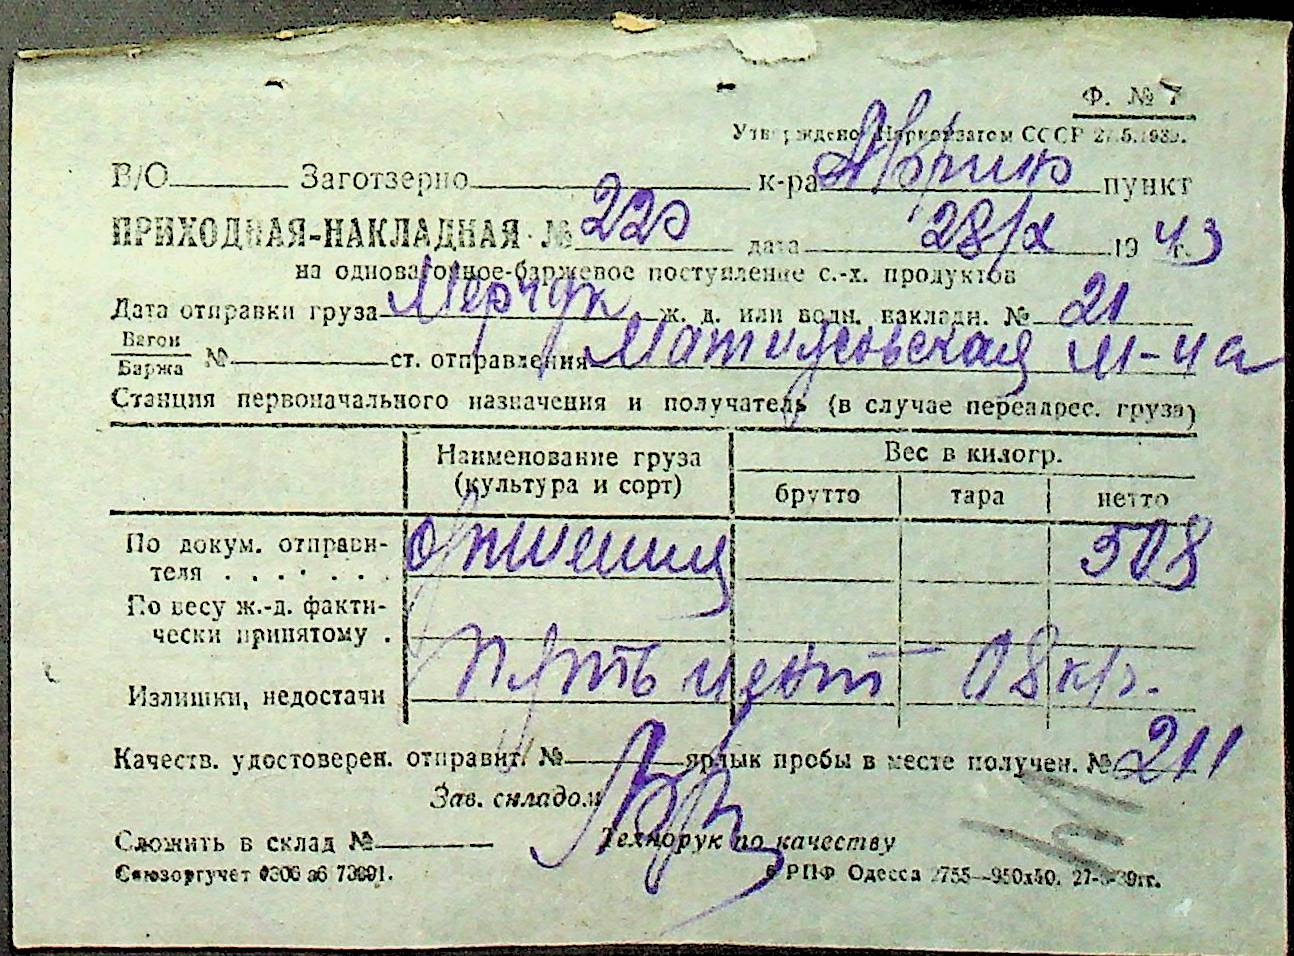 Ф. № 7
Утверждено Наркомзагом СССР 27.5.1939.
В/О Заготзерно к-ра пункт
ПРИХОДНАЯ-НАКЛАДНАЯ № 220 дата 28/X 1943 г.
на одновагонное-баржевое поступление с.-х. продуктов
Дата отправки груза ж. д. или водн. накладн. № 21
Вагон
Баржа № ст. отправления
Станция первоначального назначения и получатель (в случае переадрес. груза)
Наименование груза Вес в килогр.
(культура и сорт) брутто тара нетто
По докум. отправи- пшениц 508
теля . . . . . . .
По весу ж.-д. факти-
чески принятому .
Излишки, недостачи Пять цент – 08 кгр.
Качеств. удостоверен. отправит. № ярлык пробы в месте получен. № 211
Зав. складом
Сложить в склад № Технорук по качеству
Союзоргучет РПФ Одесса 2755—950х50.